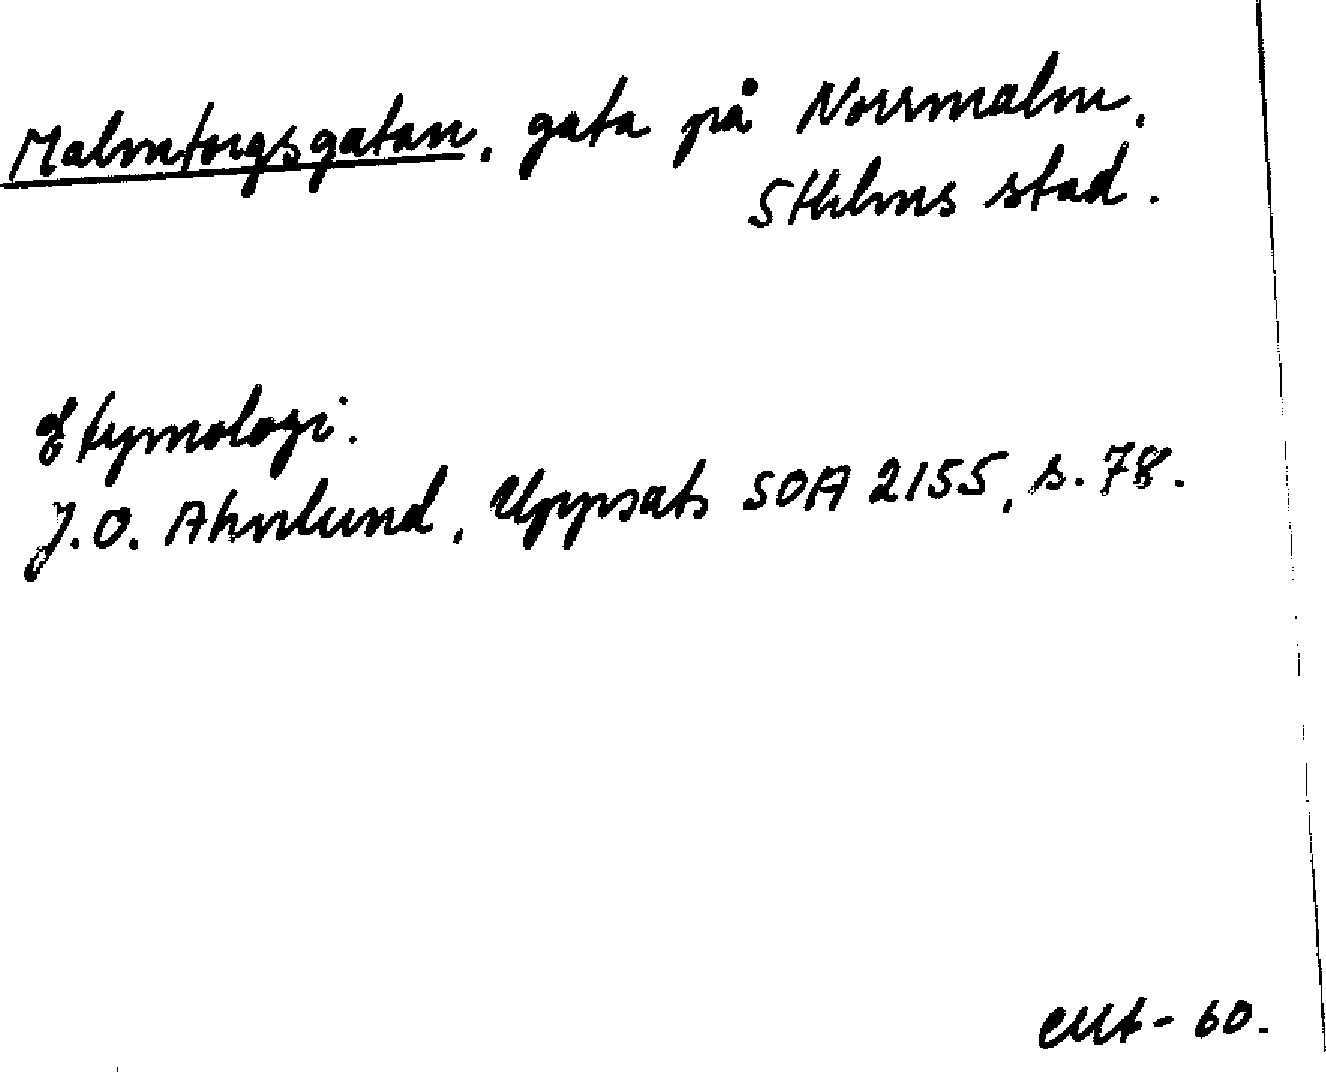 Malmtorgsgatan, gata på Norrmalm,
Sthlms stad.
Etymologi.
J.O. Ahnlund, Uppsats SOA 2155, s. 78.
- 60.